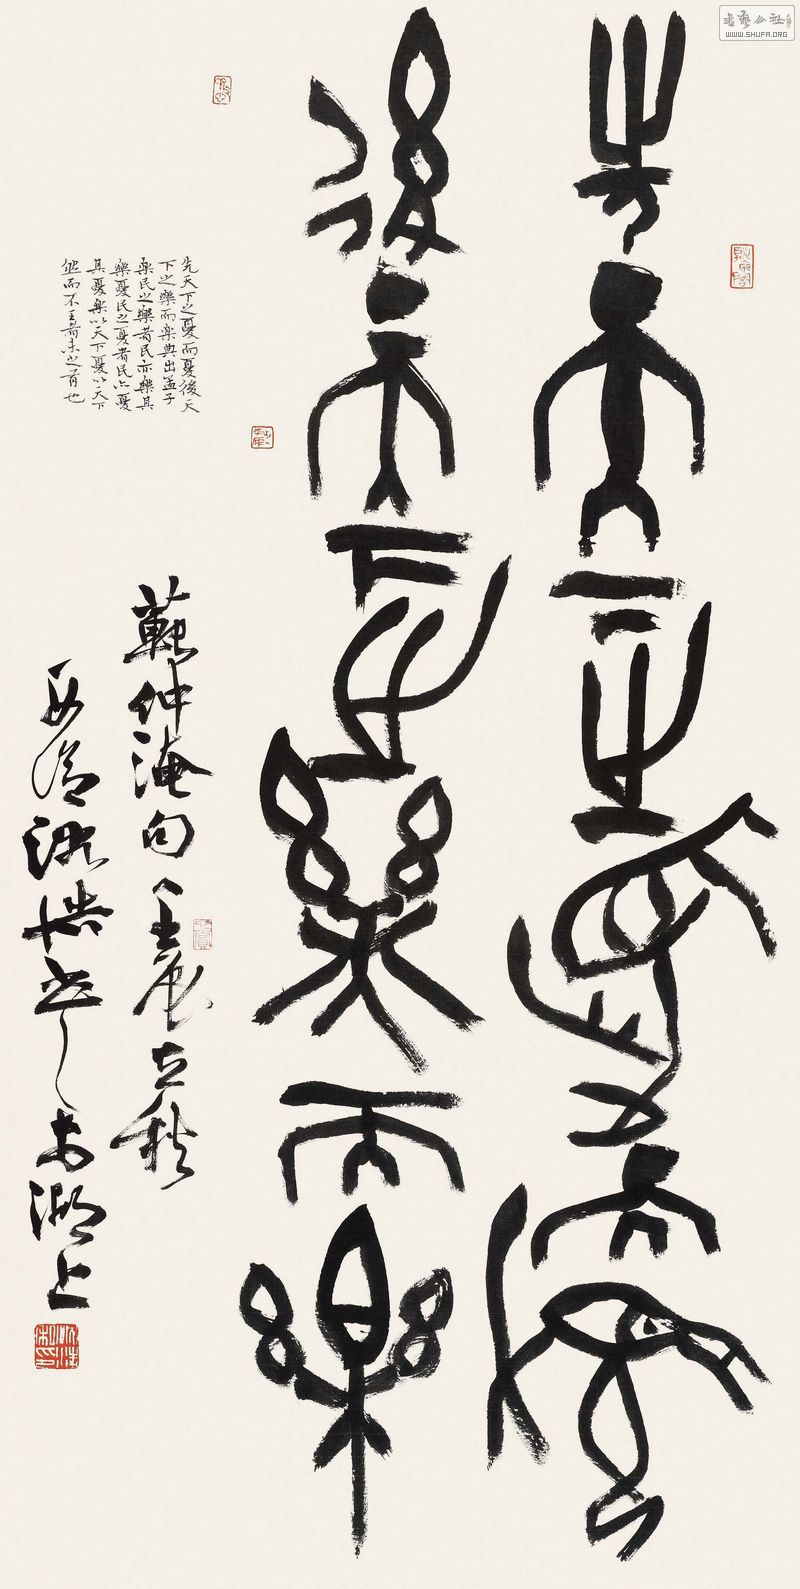 先天下之憂而憂
後天下之樂而樂
先天下之憂而憂後天
下之樂而樂典出孟子
樂民之樂者民亦樂其
樂憂民之憂者民亦憂
其憂樂以天下憂以天下
然而不王者未之有也
範仲淹句壬辰立秋
湖上
書藝公社
WWW.SHUFA.ORG